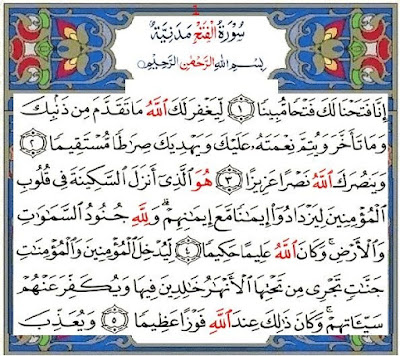 1
سُورَةُ الْفَتْحِ مَدَنِيَّةٌ
بِسْمِ اللهِ الرَّحْمٰنِ الرَّحِيمِ
إِنَّا فَتَحْنَا لَكَ فَتْحًا مُّبِينًا ١ لِّيَغْفِرَ لَكَ اللَّهُ مَا تَقَدَّمَ مِن ذَنۢبِكَ
وَمَا تَأَخَّرَ وَيُتِمَّ نِعْمَتَهُۥ عَلَيْكَ وَيَهْدِيَكَ صِرَاطًا مُّسْتَقِيمًا ٢
وَيَنصُرَكَ اللَّهُ نَصْرًا عَزِيزًا ٣ هُوَ الَّذِىٓ أَنزَلَ السَّكِينَةَ فِى قُلُوبِ
الْمُؤْمِنِينَ لِيَزْدَادُوٓا۟ إِيمَٰنًا مَّعَ إِيمَٰنِهِمْ ۗ وَلِلَّهِ جُنُودُ السَّمَٰوَٰتِ
وَالْأَرْضِ ۚ وَكَانَ اللَّهُ عَلِيمًا حَكِيمًا ٤ لِّيُدْخِلَ الْمُؤْمِنِينَ وَالْمُؤْمِنَٰتِ
جَنَّٰتٍ تَجْرِى مِن تَحْتِهَا الْأَنْهَٰرُ خَٰلِدِينَ فِيهَا وَيُكَفِّرَ عَنْهُمْ
سَيِّـَٔاتِهِمْ ۚ وَكَانَ ذَٰلِكَ عِندَ اللَّهِ فَوْزًا عَظِيمًا ٥ وَيُعَذِّبَ